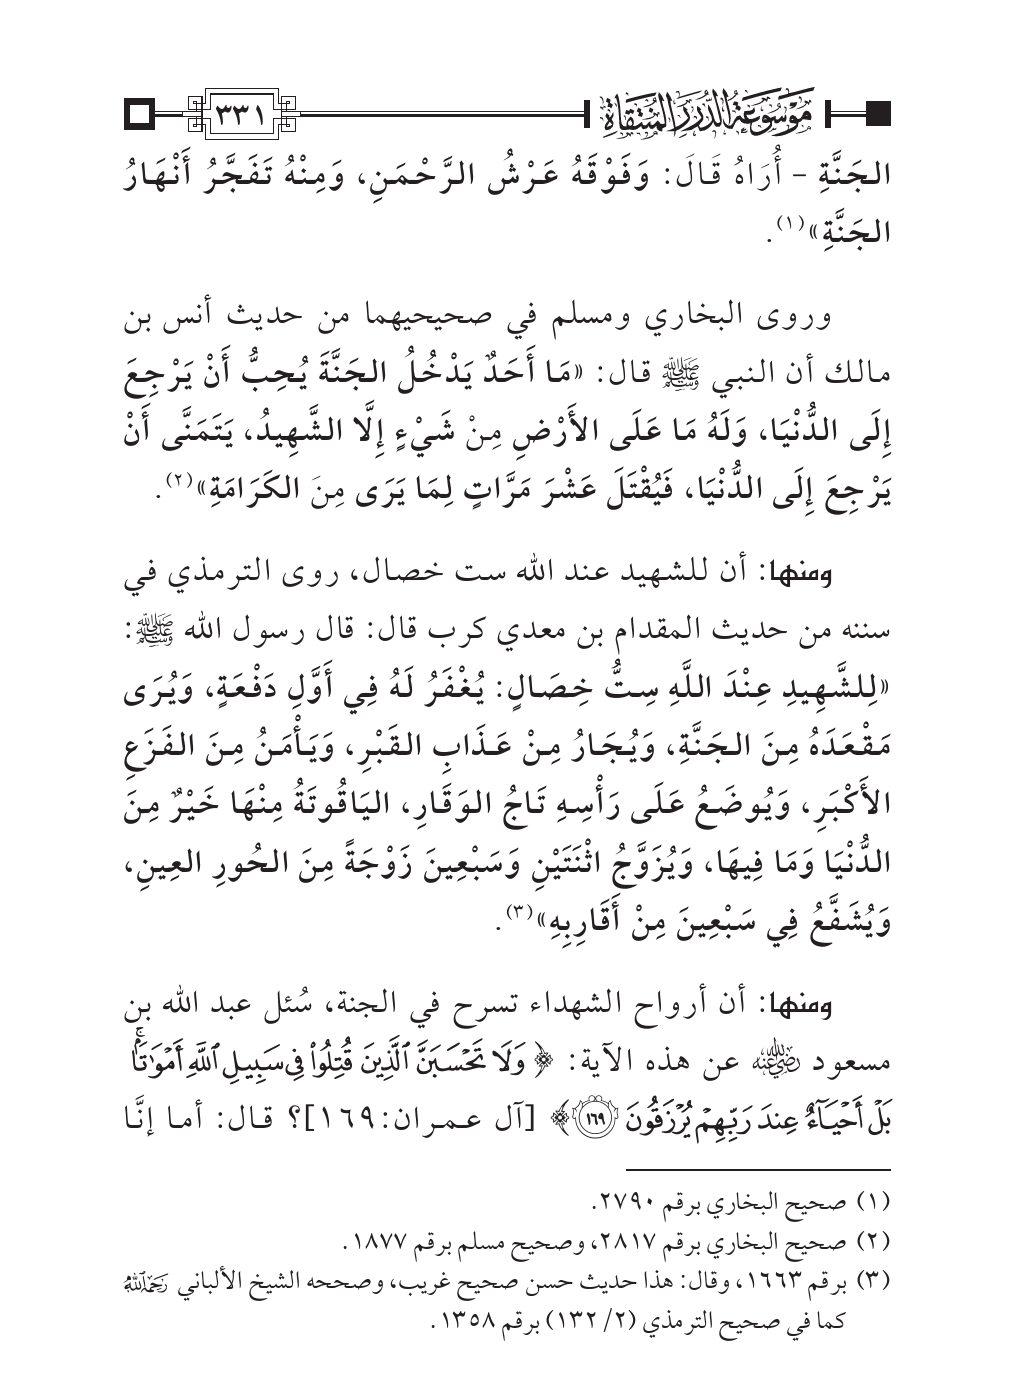 مَوْسُوعَةُ الدُّرَرِ المُنْتَقَاةِ ٣٣١
الجَنَّةِ - أُرَاهُ قَالَ: وَفَوْقَهُ عَرْشُ الرَّحْمَنِ، وَمِنْهُ تَفَجَّرُ أَنْهَارُ
الجَنَّةِ»(١).
وروى البخاري ومسلم في صحيحيهما من حديث أنس بن
مالك أن النبي ﷺ قال: «مَا أَحَدٌ يَدْخُلُ الجَنَّةَ يُحِبُّ أَنْ يَرْجِعَ
إِلَى الدُّنْيَا، وَلَهُ مَا عَلَى الأَرْضِ مِنْ شَيْءٍ إِلَّا الشَّهِيدُ، يَتَمَنَّى أَنْ
يَرْجِعَ إِلَى الدُّنْيَا، فَيُقْتَلَ عَشْرَ مَرَّاتٍ لِمَا يَرَى مِنَ الكَرَامَةِ»(٢).
ومنها: أن للشهيد عند الله ست خصال، روى الترمذي في
سننه من حديث المقدام بن معدي كرب قال: قال رسول الله ﷺ:
«لِلشَّهِيدِ عِنْدَ اللَّهِ سِتُّ خِصَالٍ: يُغْفَرُ لَهُ فِي أَوَّلِ دَفْعَةٍ، وَيُرَى
مَقْعَدَهُ مِنَ الجَنَّةِ، وَيُجَارُ مِنْ عَذَابِ القَبْرِ، وَيَأْمَنُ مِنَ الفَزَعِ
الأَكْبَرِ، وَيُوضَعُ عَلَى رَأْسِهِ تَاجُ الوَقَارِ، اليَاقُوتَةُ مِنْهَا خَيْرٌ مِنَ
الدُّنْيَا وَمَا فِيهَا، وَيُزَوَّجُ اثْنَتَيْنِ وَسَبْعِينَ زَوْجَةً مِنَ الحُورِ العِينِ،
وَيُشَفَّعُ فِي سَبْعِينَ مِنْ أَقَارِبِهِ»(٣).
ومنها: أن أرواح الشهداء تسرح في الجنة، سُئل عبد الله بن
مسعود رضي الله عنه عن هذه الآية: ﴿ وَلَا تَحْسَبَنَّ ٱلَّذِينَ قُتِلُوا۟ فِى سَبِيلِ ٱللَّهِ أَمْوَٰتًۢا ۚ
بَلْ أَحْيَآءٌ عِندَ رَبِّهِمْ يُرْزَقُونَ ١٦٩ ﴾ [آل عمران:١٦٩]؟ قال: أما إنَّا
(١) صحيح البخاري برقم ٢٧٩٠.
(٢) صحيح البخاري برقم ٢٨١٧، وصحيح مسلم برقم ١٨٧٧.
(٣) برقم ١٦٦٣، وقال: هذا حديث حسن صحيح غريب، وصححه الشيخ الألباني رحمه الله
كما في صحيح الترمذي (٢/ ١٣٢) برقم ١٣٥٨.